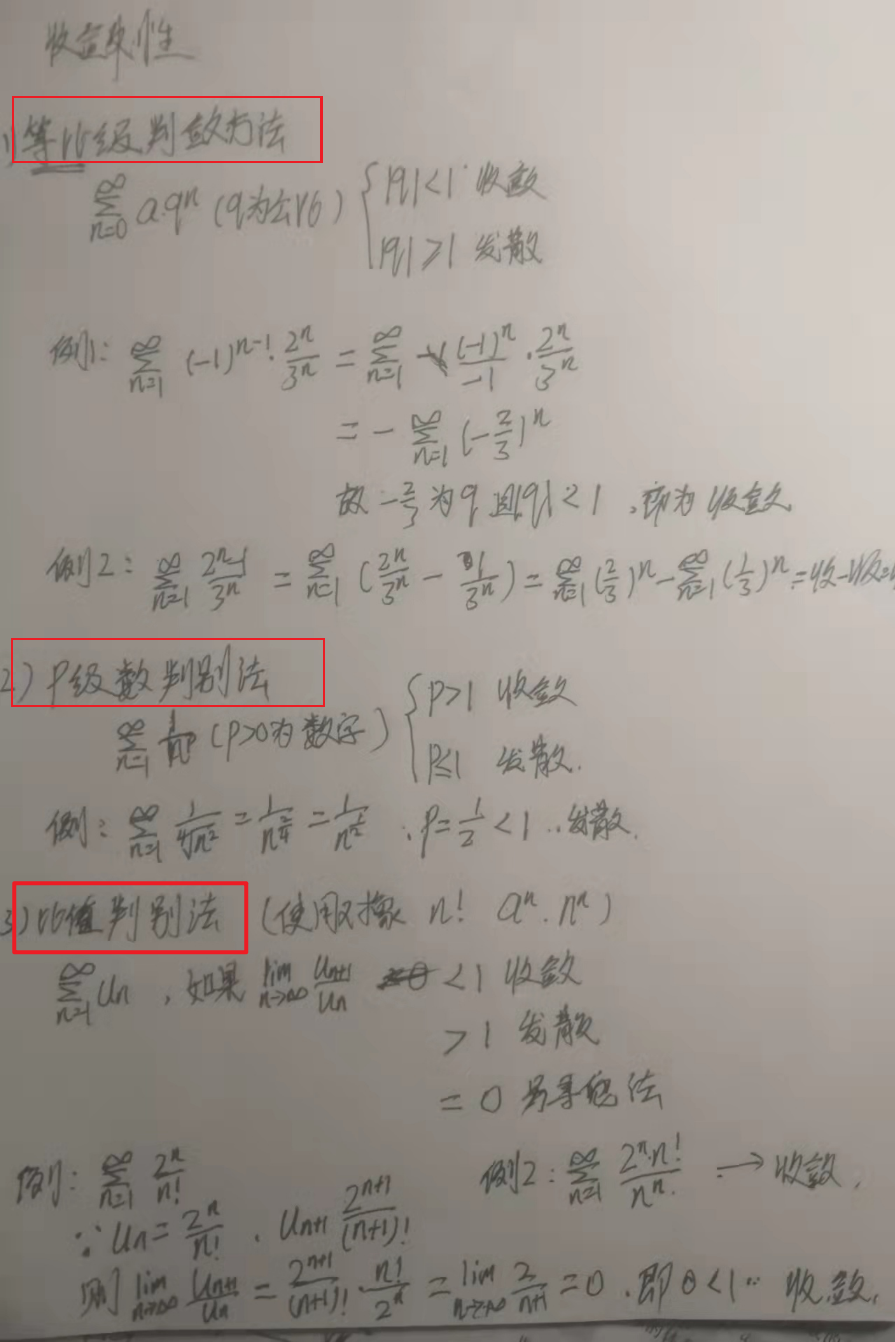 收敛性
1) 等比级判敛方法
∑_{n=0}^{∞} a·q^n (q为公比) { |q|<1 收敛
|q|≥1 发散
例1: ∑_{n=1}^{∞} (-1)^{n-1}·2^n/3^n = ∑_{n=1}^{∞} (-1)^n/-1 · 2^n/3^n
= - ∑_{n=1}^{∞} (-2/3)^n
故 -2/3 为q 且|q|<1, 即为收敛
例2: ∑_{n=1}^{∞} 2^n-1/3^n = ∑_{n=1}^{∞} (2^n/3^n - 1/3^n) = ∑_{n=1}^{∞} (2/3)^n - ∑_{n=1}^{∞} (1/3)^n = 收-收=
2) P级数判别法
∑_{n=1}^{∞} 1/n^p (P>0为数字) { P>1 收敛
P≤1 发散.
例: ∑_{n=1}^{∞} 1/∜n² = 1/n^{2/4} = 1/n^{1/2}, P=1/2<1 ∴发散.
3) 比值判别法 (使用对象 n! a^n. n^n)
∑_{n=1}^{∞} Un, 如果 lim_{n→∞} U_{n+1}/U_n <1 收敛
>1 发散
=0 另寻他法
例: ∑_{n=1}^{∞} 2^n/n! 例2: ∑_{n=1}^{∞} 2^n·n!/n^n. → 收敛.
∵ Un = 2^n/n!, U_{n+1} 2^{n+1}/(n+1)!
则 lim_{n→∞} U_{n+1}/U_n = 2^{n+1}/(n+1)! · n!/2^n = lim_{n→∞} 2/n+1 = 0. 即 0<1 ∴ 收敛.